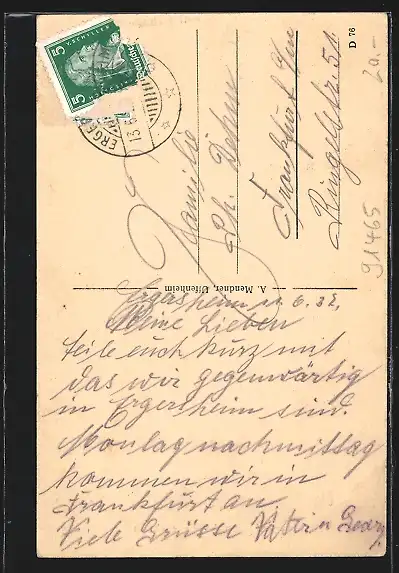 5 F. v. SCHILLER 5
ERGE
D 76
20.-
91465
Familie
Ph. Dehn
Frankfurt a/m
Ringelstr. 51
A. Mendner, Uffenheim
Ergersheim 6. 32,
Meine Lieben
teile euch kurz mit
das wir gegenwärtig
in Ergersheim sind.
Montag nachmittag
kommen wir in
Frankfurt an
Viele Grüsse Vater u Georg